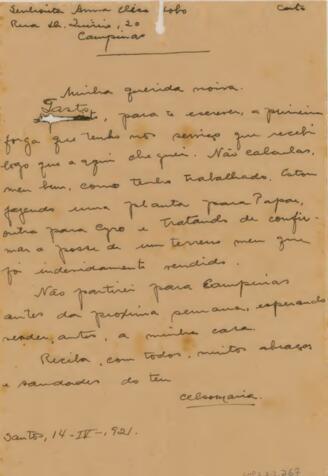 Senhorita Anna Elisa Lobo Carta
Rua Dr. Quirino, 20
Campinas
Minha querida noiva.
Gasto, para te escrever, a primeira
folga que tenho nos serviços que recebi
logo que a aqui cheguei. Não calculas,
meu bem, como tenho trabalhado. Estou
fazendo uma planta para Papae,
outra para Cyro e tratando de confir-
mar a posse de um terreno meu que
foi indevidamente vendido.
Não partirei para Campinas
antes da proxima semana, esperando
vender, antes, a minha casa.
Receba, com todos, muitos abraços
e saudades do teu
Celsomaria.
Santos, 14-IV-921.
267